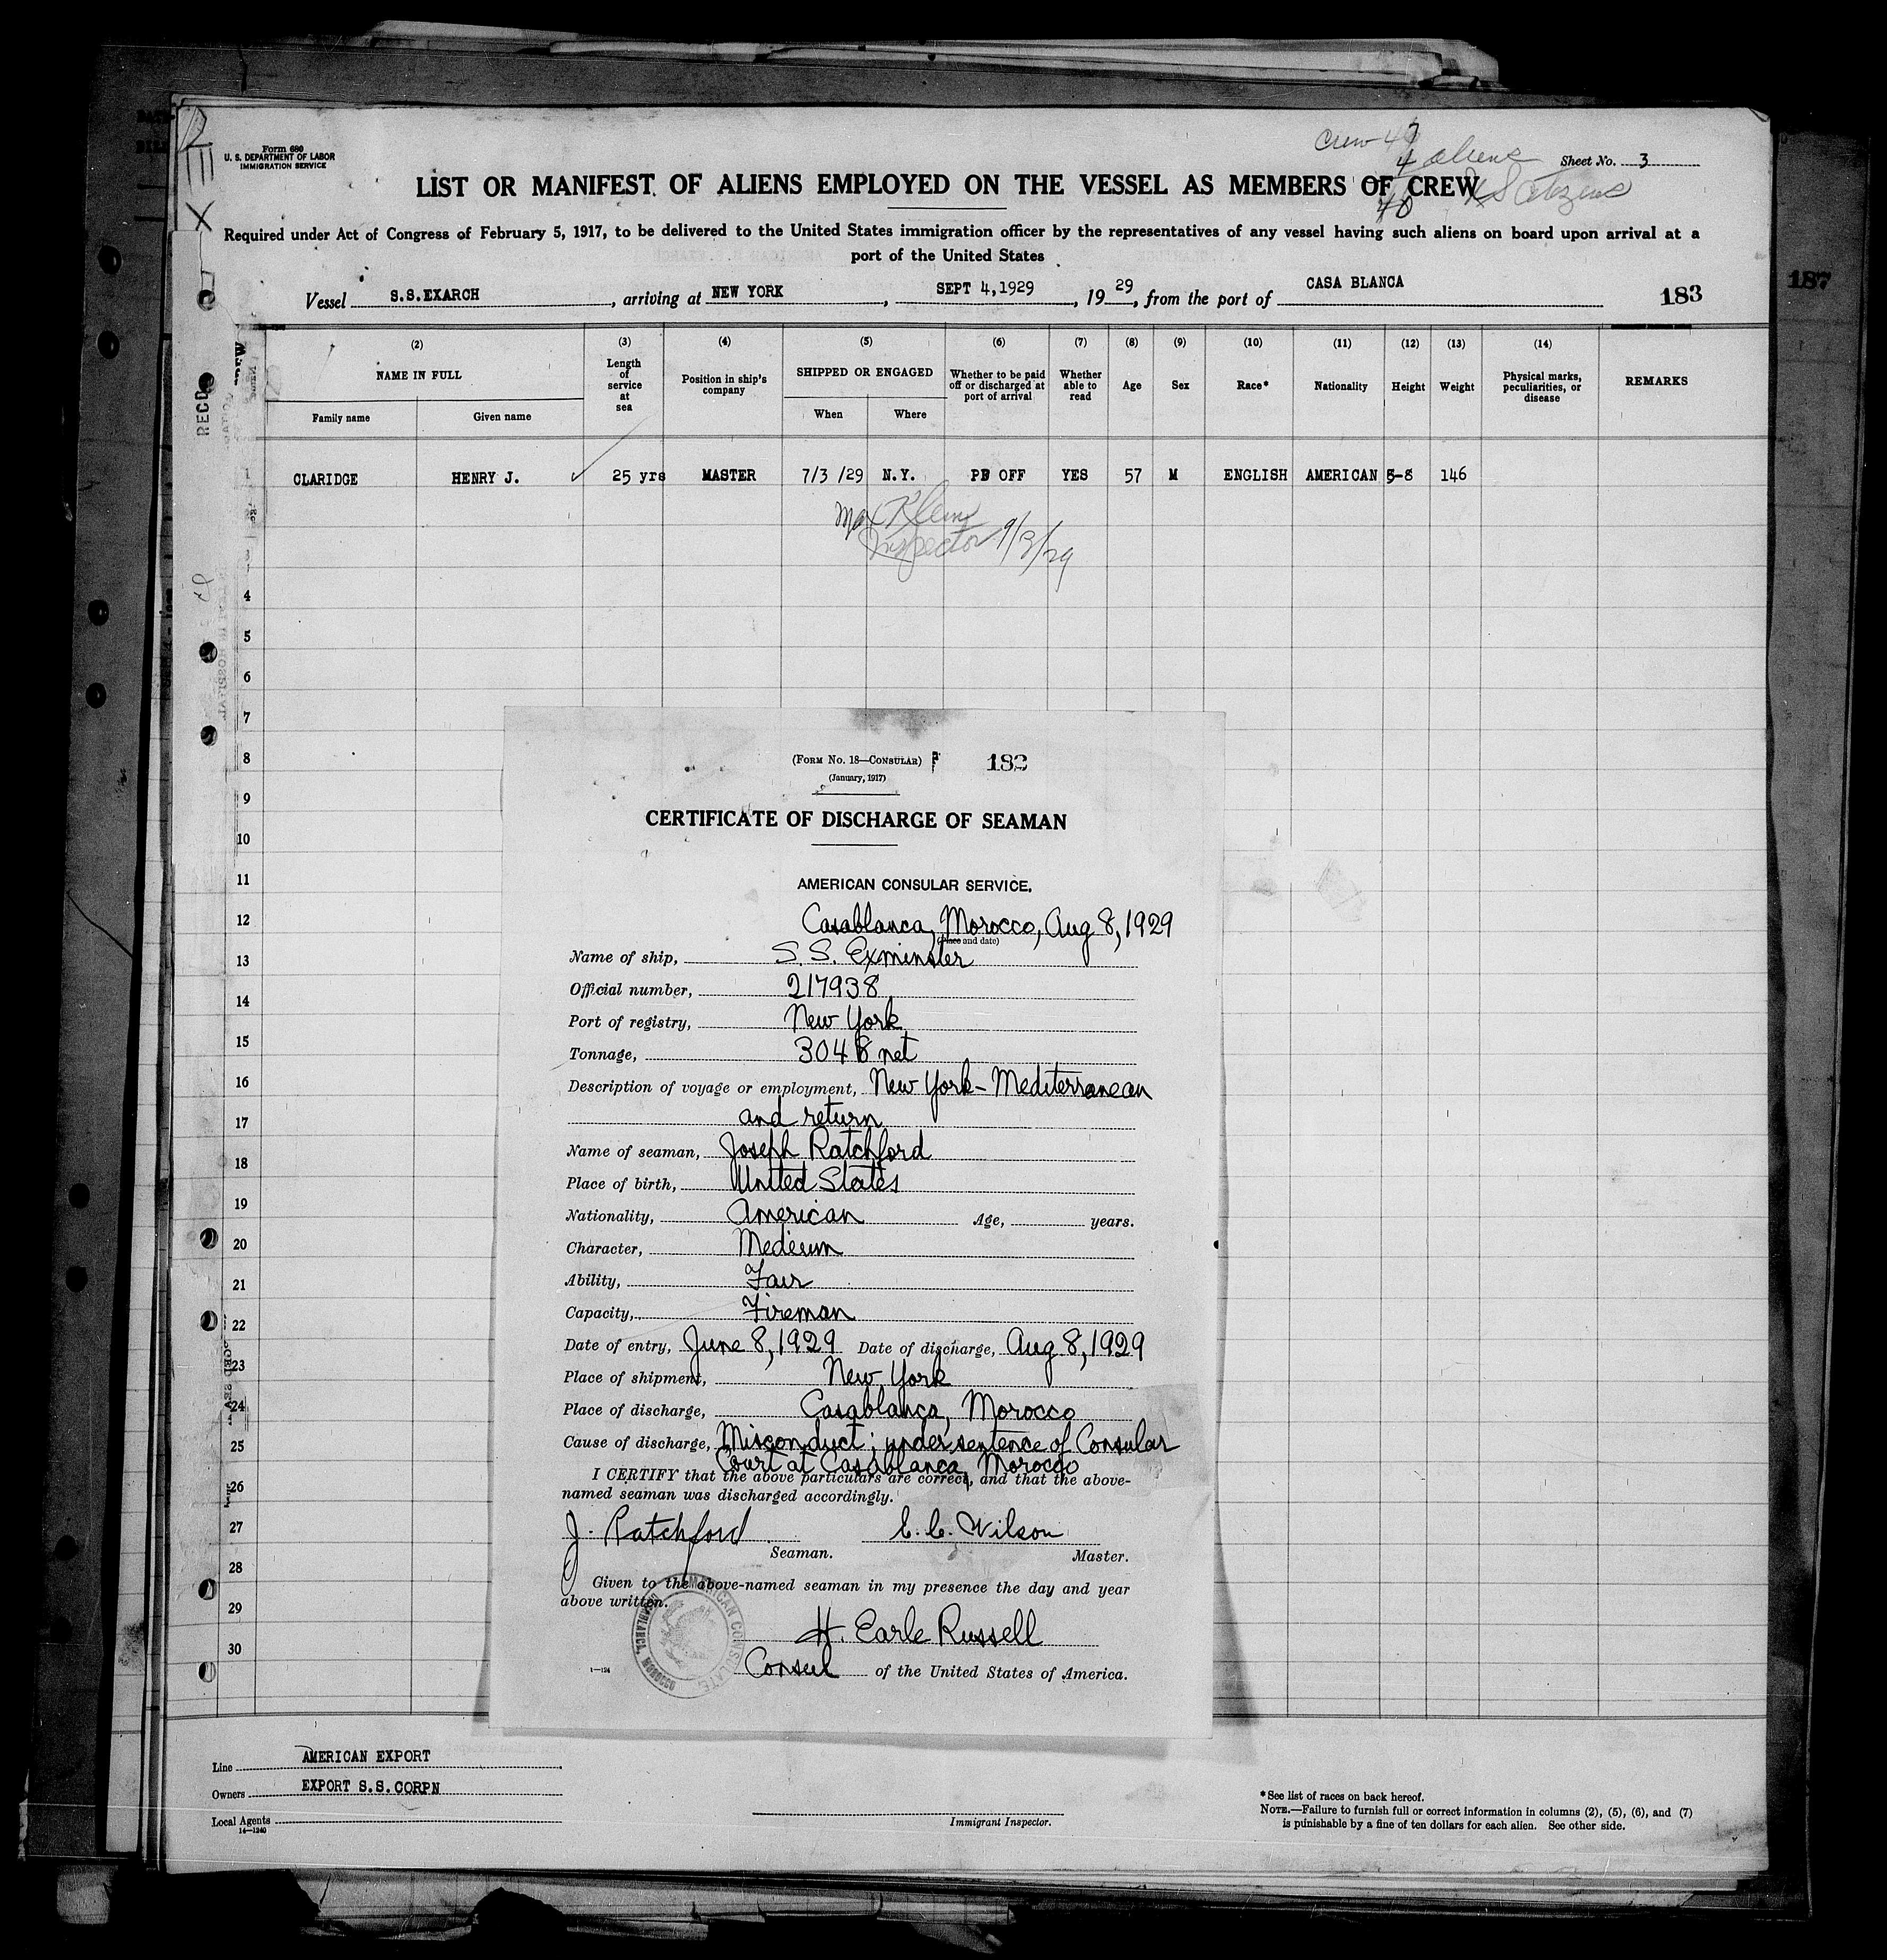 Form 680
U. S. DEPARTMENT OF LABOR
IMMIGRATION SERVICE
Crew 47
4 aliens
Sheet No. 3
LIST OR MANIFEST OF ALIENS EMPLOYED ON THE VESSEL AS MEMBERS OF CREW
U S Citizens
X
Required under Act of Congress of February 5, 1917, to be delivered to the United States immigration officer by the representatives of any vessel having such aliens on board upon arrival at a
port of the United States
Vessel S.S.EXARCH, arriving at NEW YORK, SEPT 4,1929, 1929, from the port of CASA BLANCA
183
187
RECD
(2) (3) (4) (5) (6) (7) (8) (9) (10) (11) (12) (13) (14)
NAME IN FULL
Family name Given name
Length of service at sea
Position in ship's company
SHIPPED OR ENGAGED
When Where
Whether to be paid off or discharged at port of arrival
Whether able to read
Age
Sex
Race*
Nationality
Height
Weight
Physical marks, peculiarities, or disease
REMARKS
1 CLARIDGE HENRY J. ✓ 25 yrs MASTER 7/3 /29 N.Y. PD OFF YES 57 M ENGLISH AMERICAN 5-8 146
Max Klein
Inspector 9/3/29
3
4
5
6
7
8
9
10
11
12
13
14
15
16
17
18
19
20
21
22
23
24
25
26
27
28
29
30
(FORM No. 18—CONSULAR) F 183
(January, 1917)
CERTIFICATE OF DISCHARGE OF SEAMAN
AMERICAN CONSULAR SERVICE,
Casablanca, Morocco, Aug 8, 1929
(Place and date)
Name of ship, S. S. Exminster
Official number, 217938
Port of registry, New York
Tonnage, 3048 net
Description of voyage or employment, New York - Mediterranean
and return
Name of seaman, Joseph Ratchford
Place of birth, United States
Nationality, American Age, years.
Character, Medium
Ability, Fair
Capacity, Fireman
Date of entry, June 8, 1929 Date of discharge, Aug 8, 1929
Place of shipment, New York
Place of discharge, Casablanca, Morocco
Cause of discharge, Misconduct; under sentence of Consular
Court at Casablanca, Morocco
I CERTIFY that the above particulars are correct, and that the above-
named seaman was discharged accordingly.
J. Ratchford E. C. Wilson
Seaman. Master.
Given to the above-named seaman in my presence the day and year
above written.
AMERICAN CONSULATE, CASABLANCA, MOROCCO
H. Earle Russell
Consul of the United States of America.
1—124
Line AMERICAN EXPORT
Owners EXPORT S.S.CORPN
Local Agents
14—1240
Immigrant Inspector.
*See list of races on back hereof.
NOTE.—Failure to furnish full or correct information in columns (2), (5), (6), and (7)
is punishable by a fine of ten dollars for each alien. See other side.